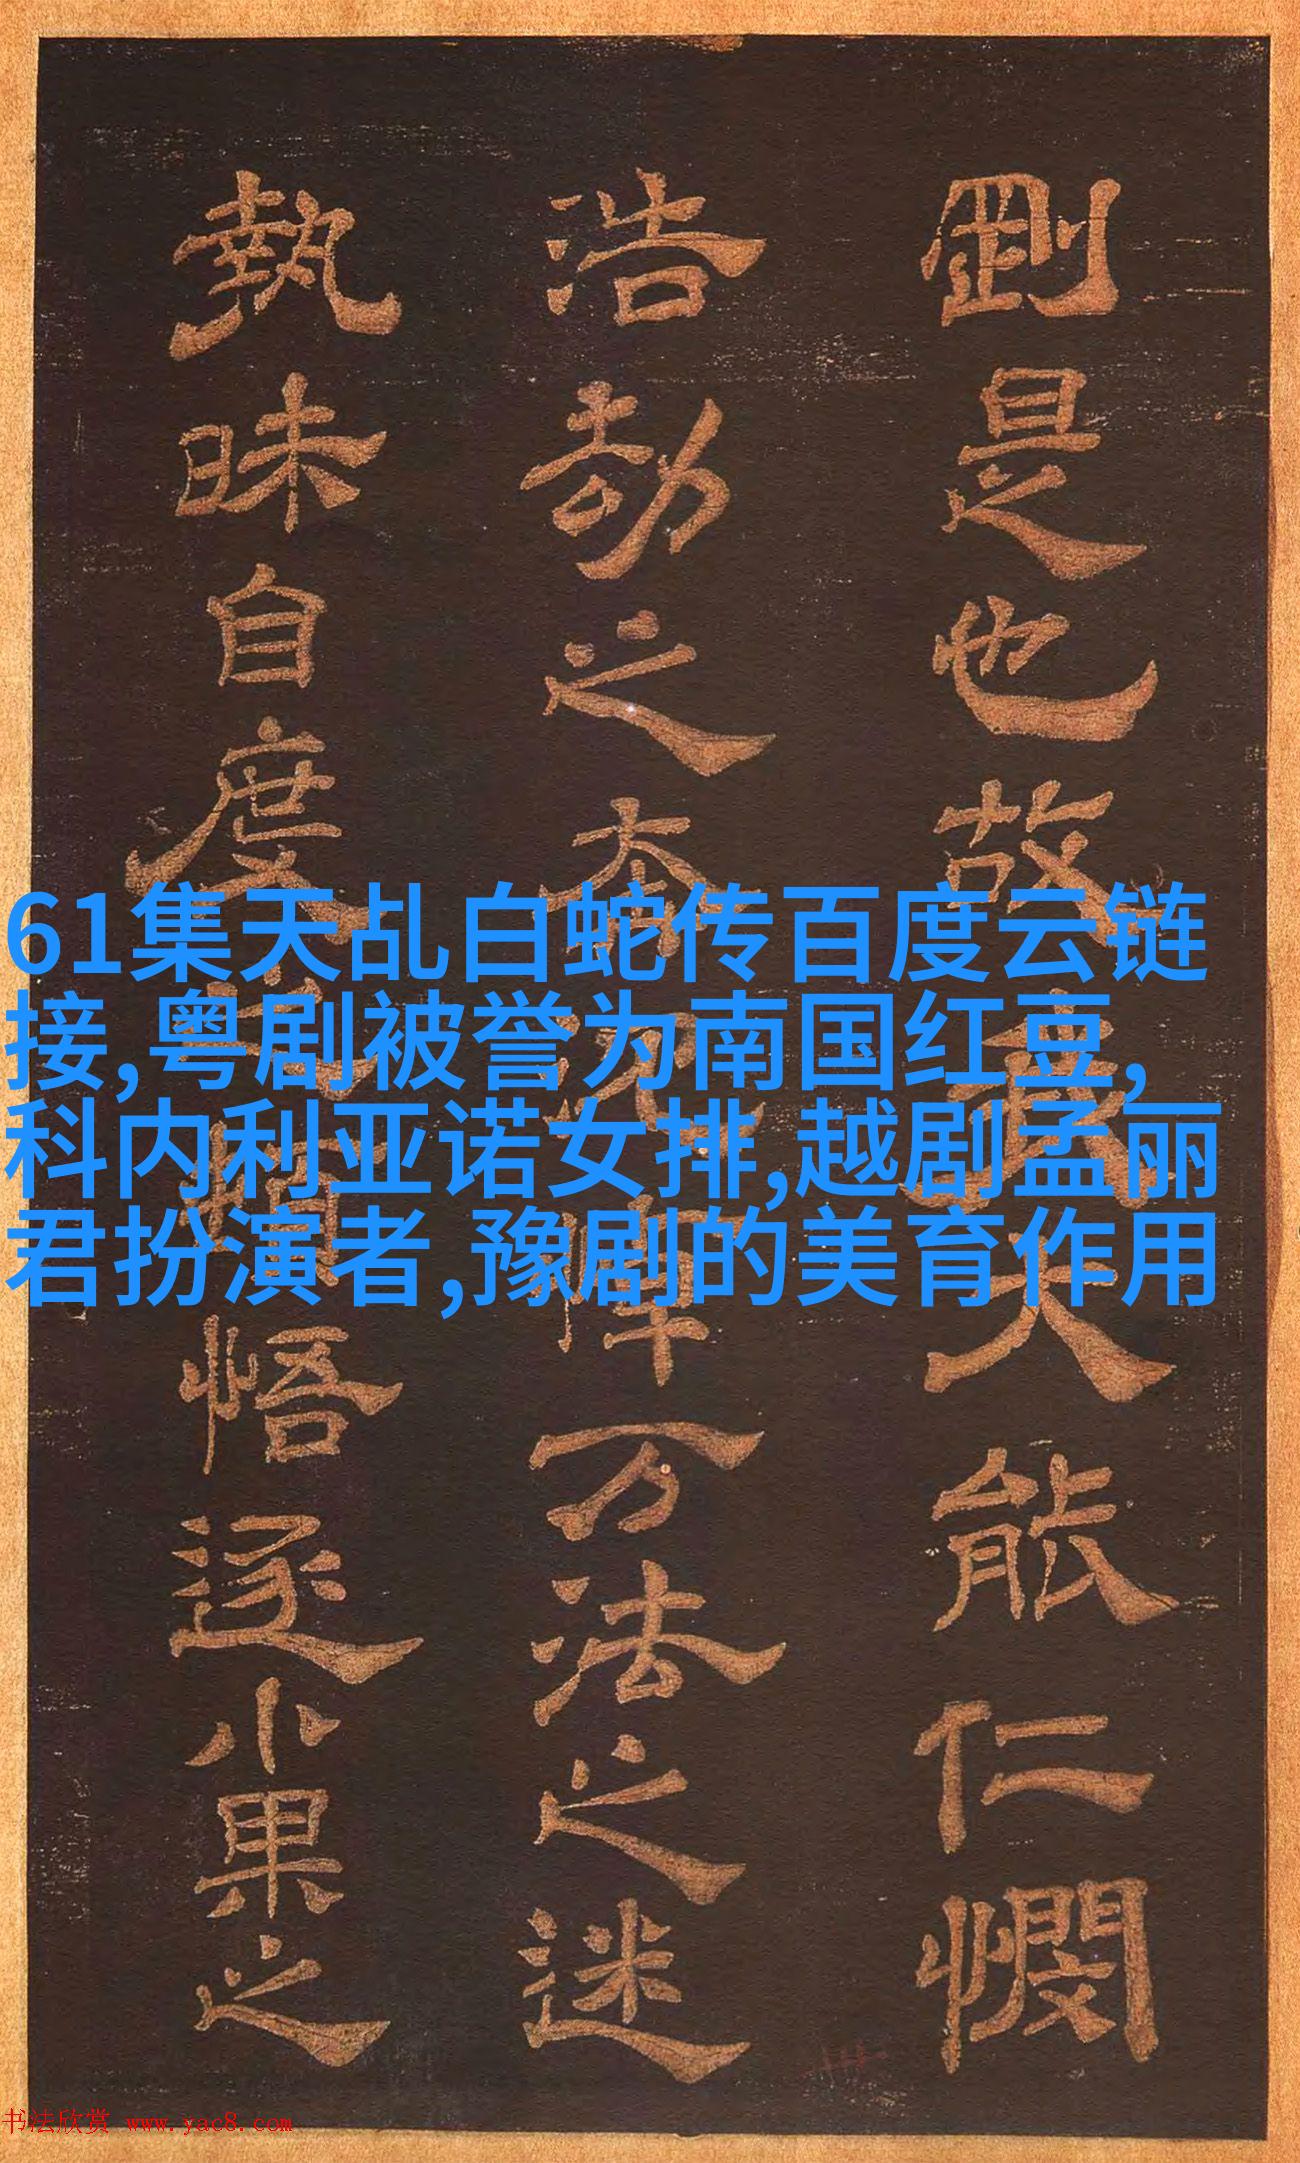 剛是也故能仁憫
浩劫之万法之迷
執昧自度悟逐小果之
61集天乩白蛇传百度云链
接,粤剧被誉为南国红豆,
科内利亚诺女排,越剧孟丽
君扮演者,豫剧的美育作用
书法欣赏 www.yac8.com